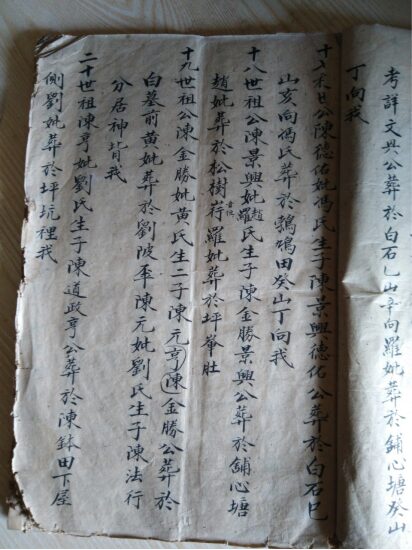 考詳文具公葬於白石巳山辛向羅妣葬於鋪心塘癸山
丁向我
世公陳德佑妣馮氏生子陳景興德佑公葬於白石巳
山亥向馮氏葬於鵓鳩田癸山丁向我
十八世祖公陳景興妣趙羅氏生子陳金勝景興公葬於鋪心塘
趙妣葬於松樹羅妣葬於坪肚
十九世祖公陳金勝妣黃氏生二子陳元亨陳金勝公葬於
白墓前黃妣葬於劉陂平陳元妣劉氏生子陳法行
分居神背我
二十世祖陳亨妣劉氏生子陳道政亨公葬於陳缽田下屋
側劉妣葬於坪坑裡我